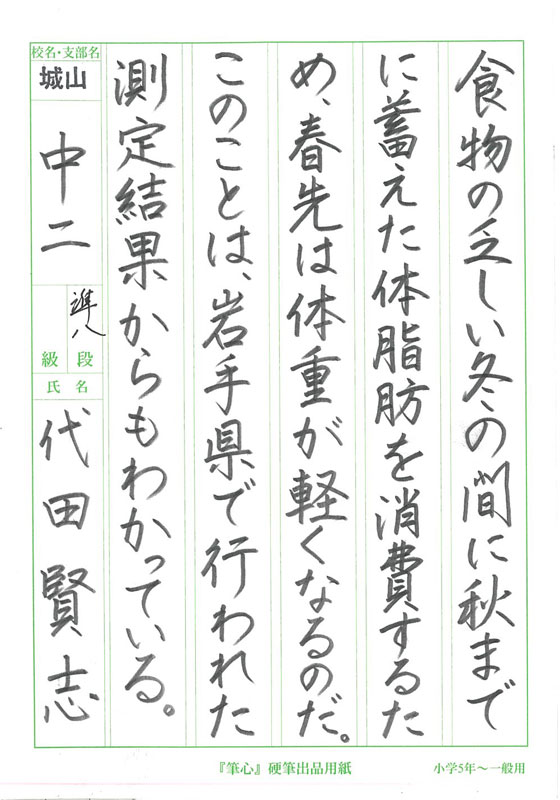 食物の乏しい冬の間に秋まで
に蓄えた体脂肪を消費するた
め、春先は体重が軽くなるのだ。
このことは、岩手県で行われた
測定結果からもわかっている。
校名・支部名
城山
中二
準八
段
級
氏名
代田賢志
『筆心』硬筆出品用紙
小学5年～一般用